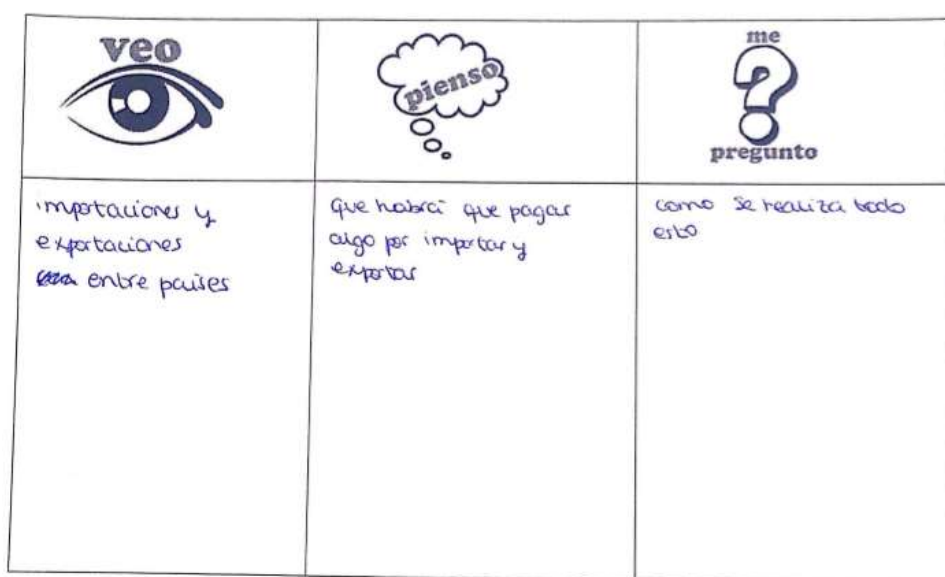 veo
pienso
me
pregunto
importaciones y
exportaciones
entre países
que habrá que pagar
algo por importar y
exportar
como se realiza todo
esto